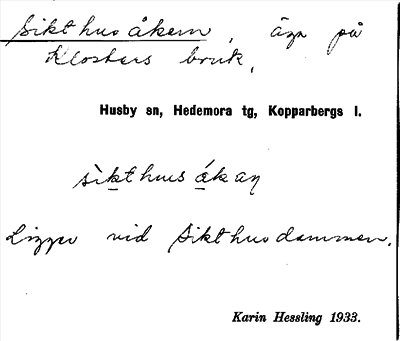 Sikthusåkern, äga på
Klosters bruk,
Husby sn, Hedemora tg, Kopparbergs l.
sìkthus ákaṇ
Ligger vid Sikthusdammen.
Karin Hessling 1933.